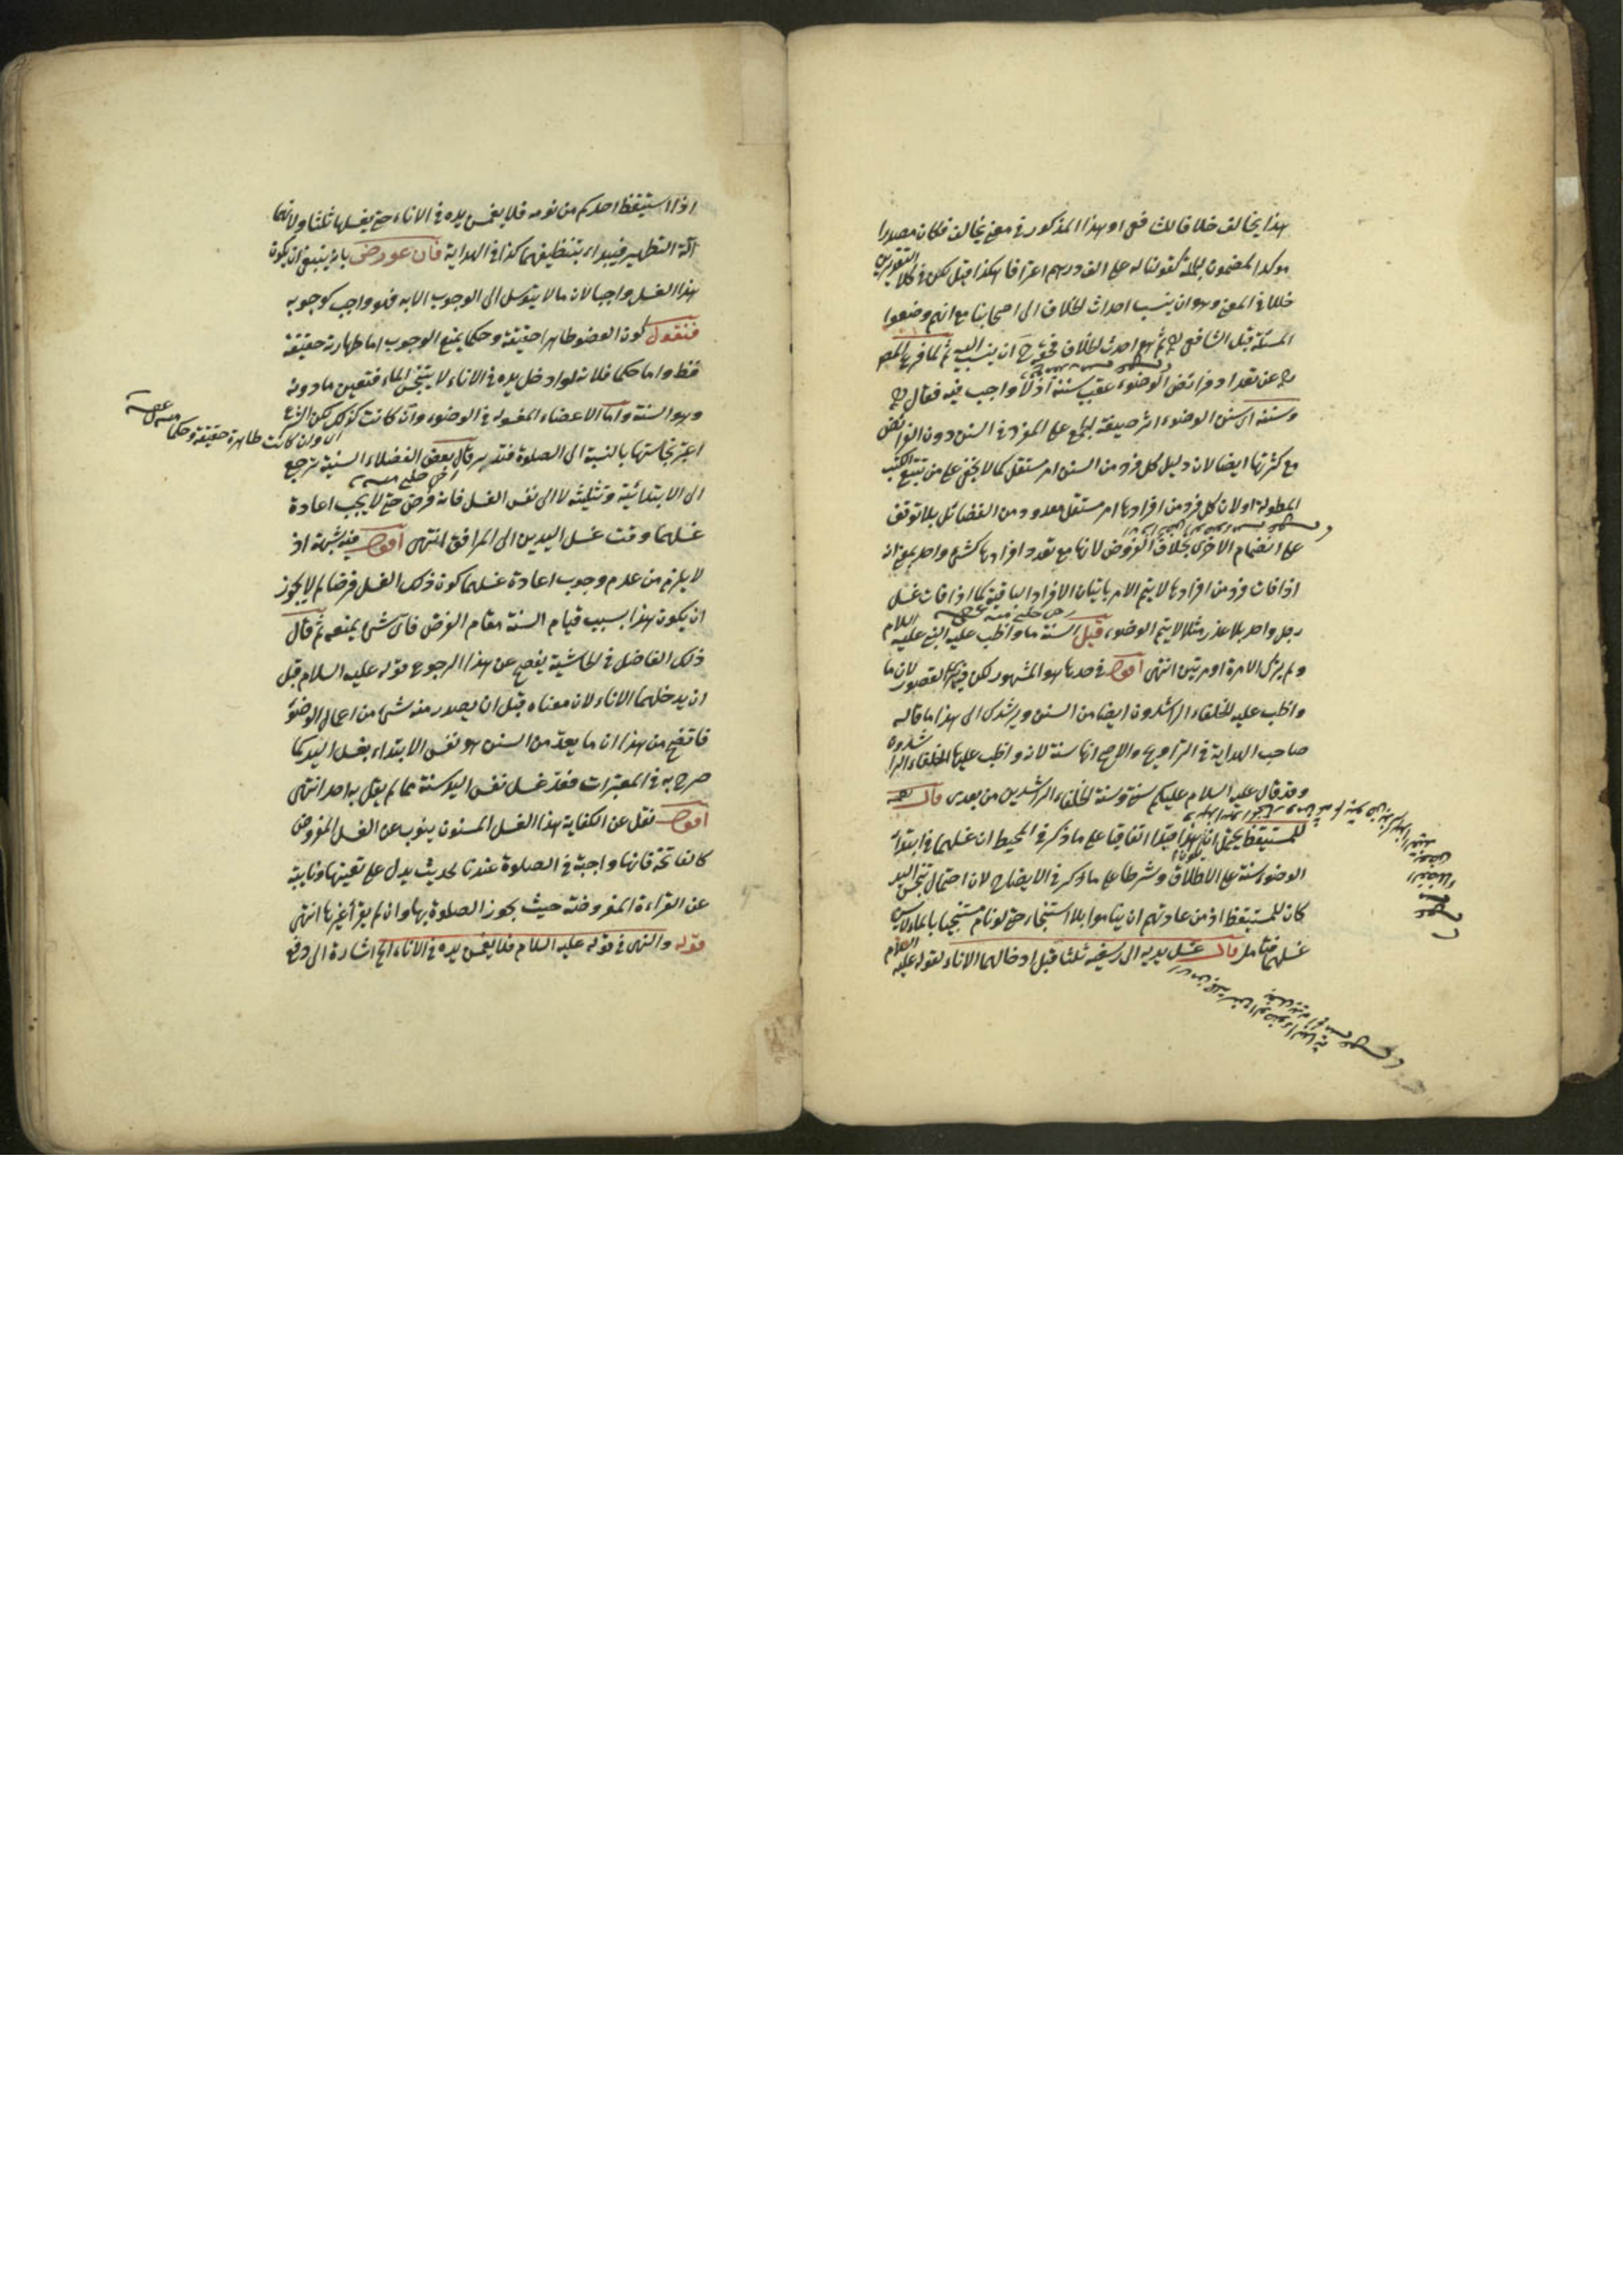 هذا يخالف خلافا للشافعي او هذا المذكور في معنى يخالف فكان مصدرا
مؤكدا لمضمون الجملة كقولنا له على الف درهم اعترافا هكذا قيل لكن في كلا التقديرين
خللا في المعنى وهو ان ينسب احداث الخلاف الى اصحابنا مع انهم وضعوا
المسئلة قبل الشافعي ره ثم هو احدث الخلاف فحقه ان ينسب اليه ثم لما فرغ المص
ره عن تعداد فرائض الوضوء عقب سننه اذ لا واجب فيه فقال ره
وسننه اى سنن الوضوء اثر صيغة الجمع على المفرد في السنن دون الفرائض
مع كثرتها ايضا لان دليل كل فرد من السنن امر مستقل كما لا يخفى على من تتبع الكتب
المطولة او لان كل فرد من افرادها امر مستقل معدود من الفضائل بلا توقف
على انضمام الاخرى بخلاف الفروض لانها مع تعدد افرادها كشئ واحد بمعنى ان
اذا فات فرد من افرادها لا يتم الامر باتيان الافراد الباقية كما اذا فات غسل
رجل واحد بلا عذر مثلا لا يتم الوضوء قيل السنة ما واظب عليه النبي عليه السلام
ولم يترك الا مرة او مرتين انتهى اقول في حدها هو المشهور لكن فيه القصور لان ما
واظب عليه الخلفاء الراشدون ايضا من السنن ويرشدك الى هذا ما قاله
صاحب الهداية في التراويح والاصح انها سنة لانه واظب عليها الخلفاء الراشدون
وقد قال عليه السلام عليكم سنتي وسنة الخلفاء الراشدين من بعدى قال
للمستيقظ يحتمل ان يكون هذا قيدا اتفاقيا على ما ذكر في المحيط ان غسلهما في ابتداء
الوضوء سنة على الاطلاق وشرطا على ما ذكر في الايضاح لان احتمال تنجس اليد
كان للمستيقظ اذ من عادتهم ان يناموا بلا استنجاء حتى لو نام مستنجيا بالماء لا يسن
غسلهما فتأمل قال غسل يديه الى رسغيه ثلثا قبل ادخالهما الاناء لقوله عليه السلام
اذا استيقظ احدكم من نومه فلا يغمس يده في الاناء حتى يغسلها ثلثا ولانها
آلة التطهير فيبداء بتنظيفهما كذا في الهداية فان عورض بانه ينبغي ان يكون
هذا الغسل واجبا لان ما لا يتوسل الى الوجوب الا به فهو واجب كوجوبه
فنقول كون العضو طاهرا حقيقة وحكما يمنع الوجوب اما طهارته حقيقة
فظ واما حكما فلانه لو ادخل يده في الاناء لا يتنجس الماء فتعين ما دونه
وهو السنة واما الاعضاء المغسولة في الوضوء وان كانت كذلك لكن الشرع
اى وان كانت طاهرة حقيقة وحكما منه
اعتبر نجاستها بالنسبة الى الصلوة فتدبر قال بعض الفضلاء السنية ترجع
الى الابتدائية وتثليثه لا الى نفس الغسل فانه فرض حتى لا يجب اعادة
غسلهما وقت غسل اليدين الى المرافق انتهى اقول فيه شبهة اذ
لا يلزم من عدم وجوب اعادة غسلهما كون ذلك الغسل فرضا لم لا يجوز
ان يكون هذا بسبب قيام السنة مقام الفرض فاى شئ يمنعه ثم قال
ذلك الفاضل في الحاشية يفصح عن هذا الرجوع قوله عليه السلام قبل
ان يدخلهما الاناء لان معناه قبل ان يصدر منه شئ من اعمال الوضوء
فاتضح من هذا ان ما يعد من السنن هو نفس الابتداء بغسل اليد كما
صرح به في المعتبرات فعد غسل نفس اليد سنة مما لم يقل به احد انتهى
اقول نقل عن الكفاية هذا الغسل المسنون ينوب عن الغسل المفروض
كالفاتحة فانها واجبة في الصلوة عندنا لحديث يدل على تعينها ونايبة
عن القراءة المفروضة حيث يجوز الصلوة بها وان لم يقرأ غيرها انتهى
قوله والنهى في قوله عليه السلام فلا يغمس يده في الاناء الخ اشارة الى دفع